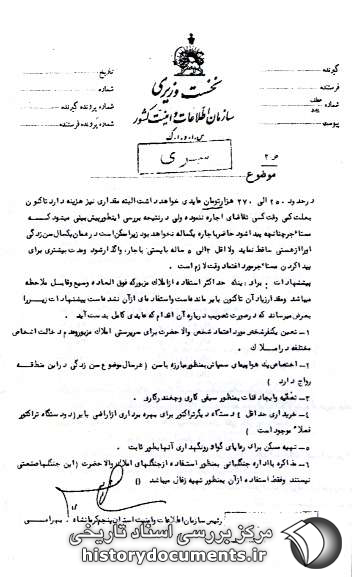 نخست وزیری
سازمان اطلاعات و امنیت کشور
س.ا.و.ا.ک
گیرنده
فرستنده
پیوست
تاریخ
شماره
شماره پرونده گیرنده
شماره پرونده فرستنده
سری
موضوع
در حدود ۲۵۰ الی ۲۷۰ هزار تومان عایدی خواهد داشت البته مقداری نیز هزینه دارد تاکنون
بعلت کمی وقت کسی تقاضای اجاره ننموده ولی در نتیجه بررسی اینطور پیش بینی میشود کسه
مستاجر چنانچه پیدا شود حاضر باجاره یکساله نخواهد بود زیرا ممکن است در همان یکسال سن زدگی
اورا از هستی ساقط نماید ولا اقل ۲ الی ۵ ساله بایستی باجاره واگذار شود و مدت بیشتری برای
پیدا کردن مستاجر مورد اعتماد وقت لازم است .
پیشنهادات : برای اینکه حداکثر استفاده از املاک مزبور که فوق العاده وسیع و قابل ملاحظه
میباشد و مقدار زیاد آن تاکنون بایر مانده است واستفاده ای از آن نشده است پیشنهادات زیر را
بعرض میرساند که در صورت تصویب درباره آن اقدام که عایدی کامل بدست آید .
۱ - تعیین یکنفر شخص مورد اعتماد شخص والا حضرت برای سرپرستی املاک مزبور و عدم دخالت اشخاص
مختلفه در املاک .
۲ - اختصاص یک هواپیمای سمپاشی بمنظور مبارزه باسن ( هر سال موضوع سن زدگی در این منطقه
رواج دارد )
۳ - تنقیه و ایجاد قنات بمنظور صیفی کاری و چغندر کاری .
۴ - خریداری حداقل ۲ دستگاه دیگر تراکتور برای بهره برداری از اراضی بایر ( دو دستگاه تراکتور
فعلا موجود است )
۵ - تهیه مسکن برای رعایای گواد رونگهداری آنها بطور ثابت .
۶ - مذاکره با اداره جنگلبانی بمنظور استفاده از جنگلهای املاک والا حضرت ( این جنگلها صنعتی
نیستند و فقط استفاده از آن بمنظور تهیه زغال میباشد )
رئیس سازمان اطلاعات و امنیت استان پنجم کرمانشاه . بهرامی
مرکز بررسی اسناد تاریخی
historydocuments.ir